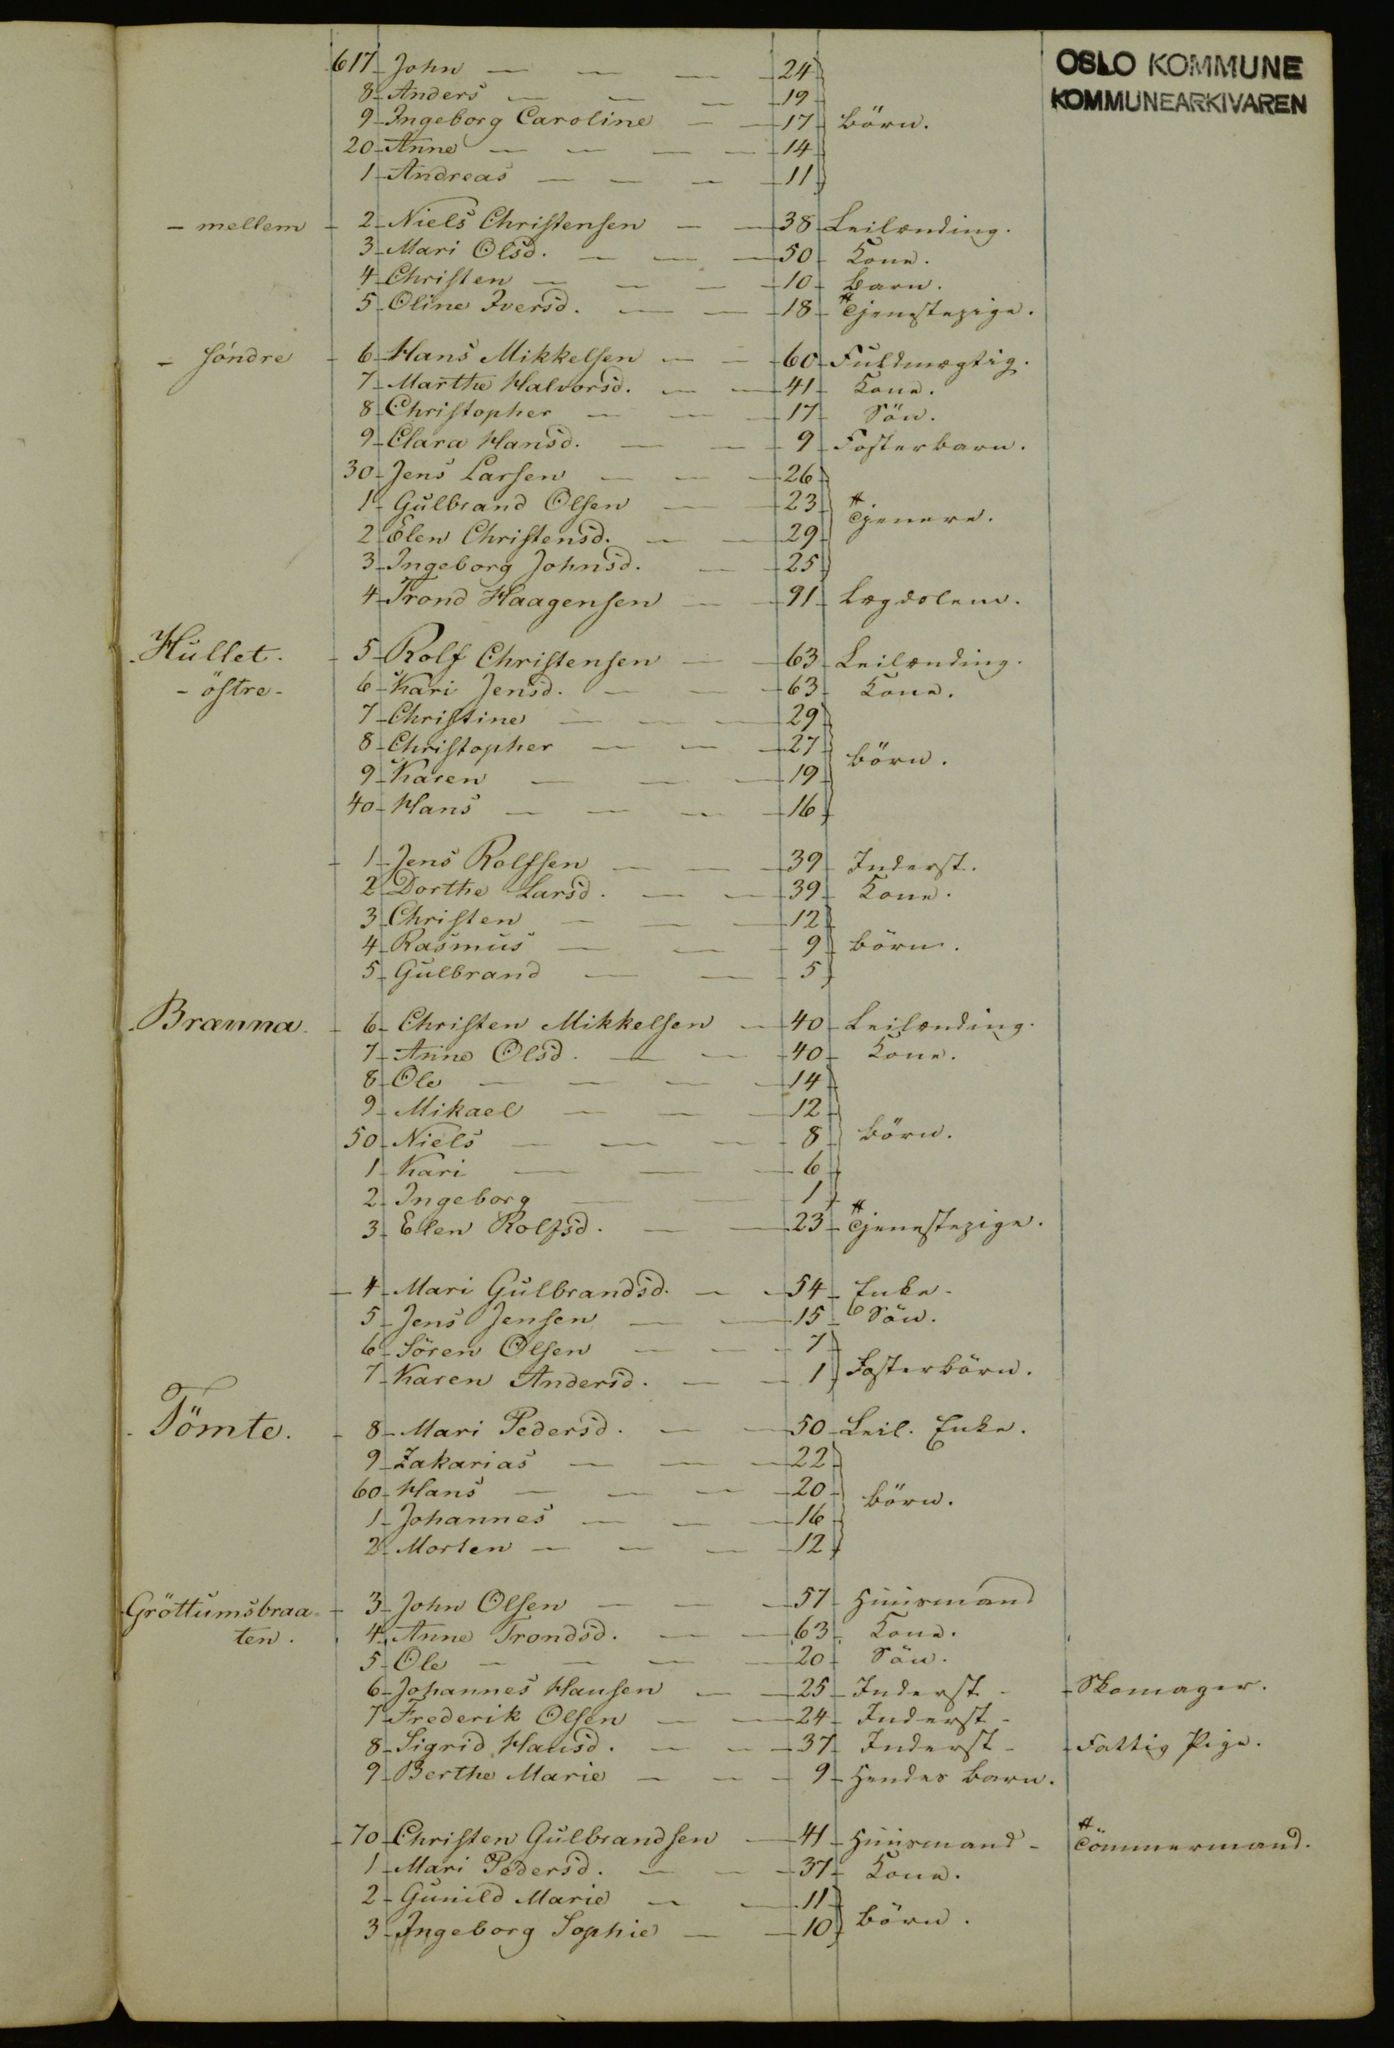 OSLO KOMMUNE
KOMMUNEARKIVAREN
617 John — — — 24
8 Anders — — — 19
9 Ingeborg Caroline — — 17 Börn.
20 Anne — — — — 14
1 Andreas — — — 11
- mellem - 2 Niels Christensen — — 38 Leilænding.
3 Mari Olsd. — — — 50 Kone.
4 Christen — — — — 10 Barn.
5 Oline Iversd. — — 18 Tjenestepige.
- söndre - 6 Hans Mikkelsen — — 60 Fuldmægtig.
7 Marthe Halvorsd. — — 41 Kone.
8 Christopher — — — 17 Sön.
9 Clara Hansd. — — 9 Fosterbarn.
30 Jens Larsen — — — 26
1 Gulbrand Olsen — — 23 Tjenere.
2 Elen Christensd. — — 29
3 Ingeborg Johnsd. — — 25
4 Trond Haagensen — — 91 Lægdslem.
Hullet. - 5 Rolf Christensen — — 63 Leilænding.
- östre - 6 Kari Jensd. — — — 63 Kone.
7 Christine — — — 29
8 Christopher — — — 27 Börn.
9 Karen — — — 19
40 Hans — — — — 16
1 Jens Rolfsen — — — 39 Inderst.
2 Dorthe Larsd. — — 39 Kone.
3 Christen — — — 12
4 Rasmus — — — 9 Börn.
5 Gulbrand — — 5
Brænna - 6 Christen Mikkelsen — 40 Leilænding.
7 Anne Olsd. — — 40 Kone.
8 Ole — — — — 14
9 Mikael — — — 12
50 Niels — — — 8 Börn.
1 Kari — — — 6
2 Ingeborg — — 1
3 Elen Rolfsd. — — 23 Tjenestepige.
4 Mari Gulbrandsd. — — 54 Enke.
5 Jens Jensen — — 15 Sön.
6 Sören Olsen — — — 7
7 Karen Andersd. — — 1 Fosterbörn.
Tömte. - 8 Mari Pedersd. — — 50 Leil. Enke.
9 Zakarias — — — 22
60 Hans — — — — 20 Börn.
1 Johannes — — — 16
2 Morten — — — 12
Gröttumsbraa- - 3 John Olsen — — — 57 Huusmand
ten. 4 Anne Trondsd. — — 63 Kone.
5 Ole — — — — 20 Sön.
6 Johannes Hansen — — 25 Inderst - Skomager.
7 Frederik Olsen — — 24 Inderst -
8 Sigrid Hansd. — — — 37 Inderst - Fattig Pige.
9 Berthe Marie — — — 9 Hendes Barn.
70 Christen Gulbrandsen — 41 Huusmand - Tömmermand.
1 Mari Pedersd. — — — 37 Kone.
2 Gunild Marie — — 11
3 Ingeborg Sophie — — 10 Börn.